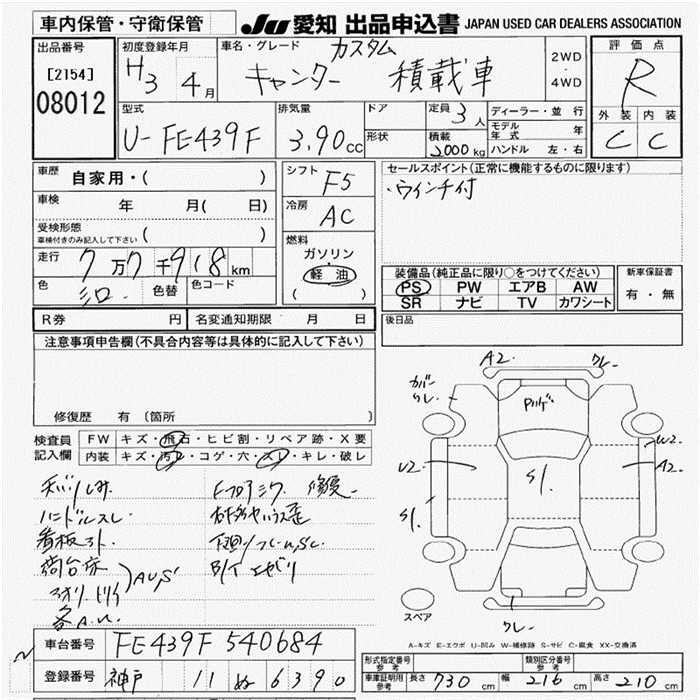 車内保管・守衛保管
JU 愛知 出品申込書 JAPAN USED CAR DEALERS ASSOCIATION
出品番号
[2154]
08012
初度登録年月
H3 4月
車名・グレード
カスタム
キャンター 積載車
2WD
・
4WD
評価点
R
外装 内装
C C
型式
U-FE439F
排気量
3.90cc
ドア
形状
定員
3人
積載
2000kg
ディーラー・並行
モデル年式 年
ハンドル 左・右
車歴 自家用・( )
車検 年 月( 日)
受検形態
車検付きのみ記入して下さい ( )
走行 7万7千918km
色 シロ. 色替 色コード
シフト F5
冷房 AC
燃料
ガソリン
・
軽油
( )
セールスポイント(正常に機能するものに限ります)
・ウインチ付
装備品(純正品に限り○をつけてください)
PS PW エアB AW
SR ナビ TV カワシート
新車保証書
有・無
R券 円 名変通知期限 月 日
後日品
注意事項申告欄(不具合内容等は具体的に記入して下さい)
修復歴 有〔箇所 〕
検査員
記入欄
FW キズ・飛石・ヒビ割・リペア跡・X要
内装 キズ・汚レ・コゲ・穴・スレ・キレ・破レ
ハンドルスレ
看板ヌト.
荷台床
A2.
クレ.
カバー
クレ.
U2
S1.
W2.
A2.
S1.
クレ.
スペア
A-キズ E-エクボ U-凹み W-補修跡 S-サビ C-腐食 XX-交換済
車台番号 FE439F 540684
登録番号 神戸 11 ぬ 6390
形式指定番号
参考
類別区分番号
参考
車庫証明用
参考
長さ 730 cm 幅 216 cm 高さ 210 cm